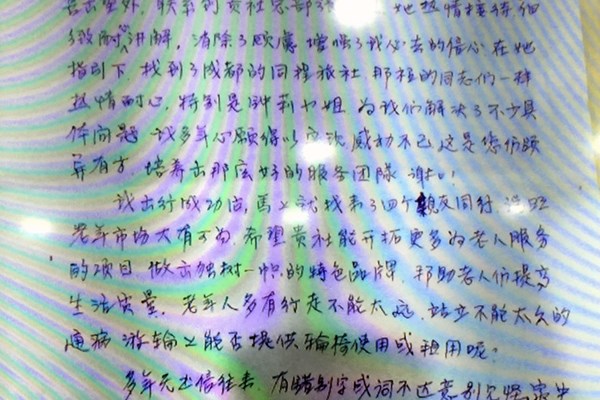 她热情接待细
致耐心讲解，消除了顾虑 增强了我必去的信心 在她
指引下，找到了成都的同程旅社 那里的同志们一样
热情耐心，特别是钟莉小姐 为我们解决了不少具
体问题 我多年心愿得以实现 感动不已 这是您们领
导有方，培养出那么好的服务团队 谢谢！
我出行成功后，马上就找来了四个亲友同行
老年市场大有可为，希望贵社能开拓更多为老人服务
的项目 做出独树一帜的特色品牌，帮助老人们提高
生活质量，老年人多有行走不能太远，站立不能太久的
通病 游轮上能否提供轮椅使用或租用呢？
多年无书信往来，有错别字或词不达意别见怪